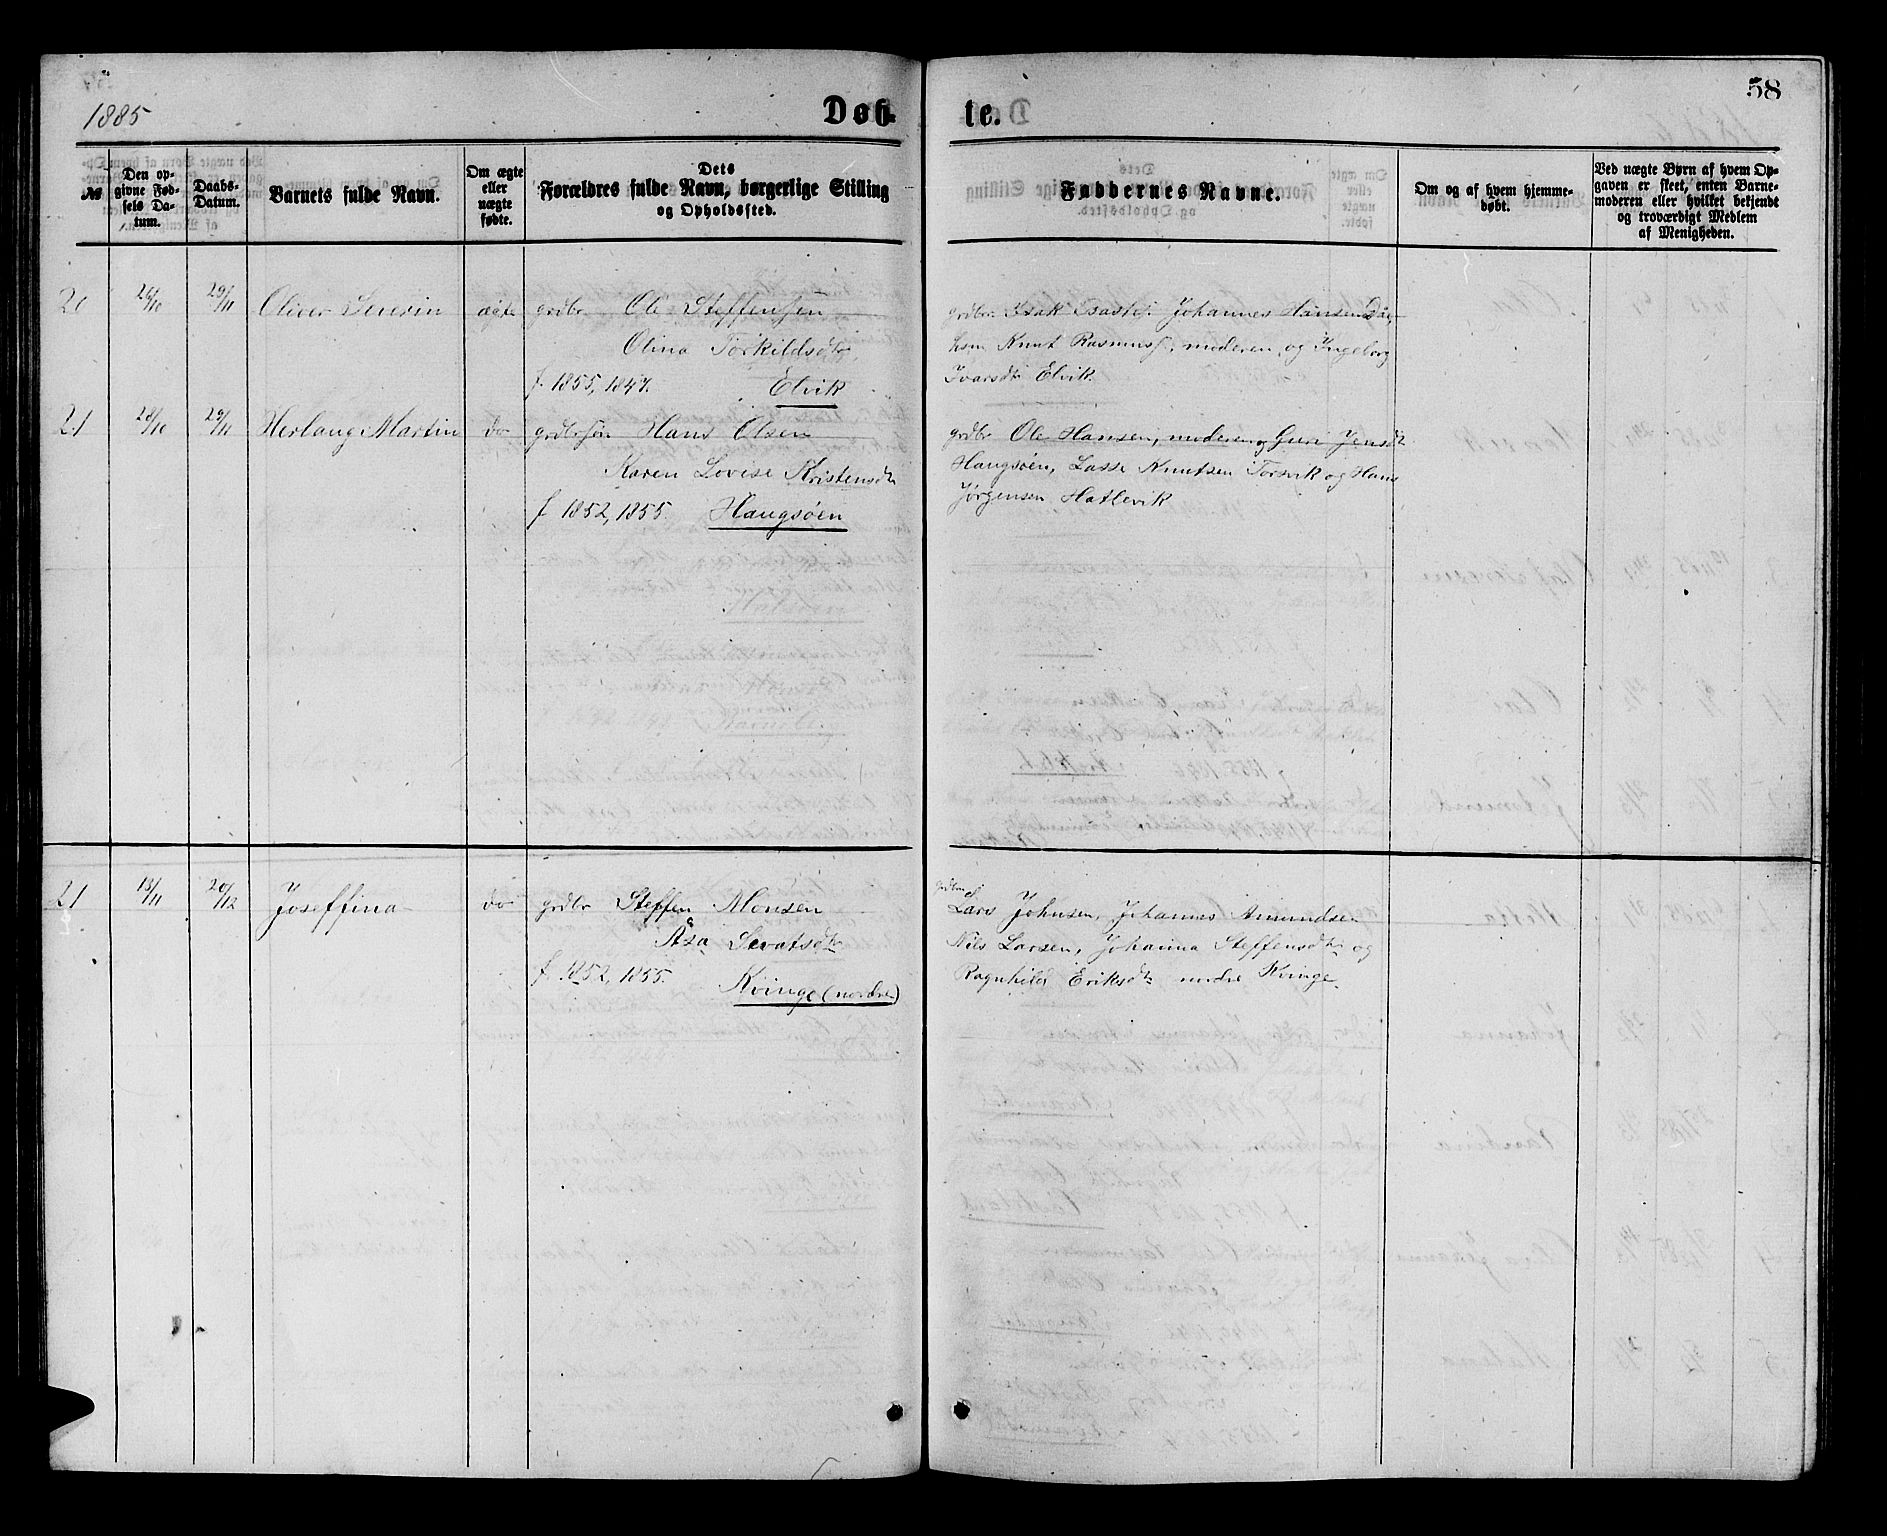 58
1885
Døb te.
№
Den op-
givne Fød-
sels Da-
tum.
Daabs-
Datum.
Barnets fulde Navn.
Om ægte
eller
uægte
fødte.
Dets
Forældres fulde Navn, borgerlige Stilling
og Opholdssted.
Faddernes Navne.
Om og af hvem hjemme-
døbt.
Ved uægte Børn af hvem Op-
gaven er skeet, enten Barne-
moderen eller hvilket bekjendt
og troværdigt Medlem
af Menigheden.
20 26/10 29/11 Oliver Severin ægte grdbr Ole Steffensen
Olina Torkildsdtr
f. 1855, 1847. Elvik
grdbr. Isak Isaks. Johannes Hansen
Knut Rasmus, moderen, og Ingeborg
Ivarsdtr Elvik.
21 28/10 29/11 Herlaug Martin do grdbrsøn Hans Olsen
Karen Lovise Kristensdtr
f 1852, 1855. Haugsøen
grdbr Ole Hansen, moderen og Guri Jensdtr
Haugsøen, Lasse Knutsen Torsvik og Hans
Jørgensen Hatlevik
21 13/11 20/12 Joseffina do grdbr Steffen Monsen
Åsa Sevatsdtr
f. 1852, 1855. Kvinge (nordre)
grdbr
Lars Johnsen, Johannes Amundsen
Nils Larsen, Johanna Steffensdtr og
Ragnhild Eriksdtr nordre Kvinge.